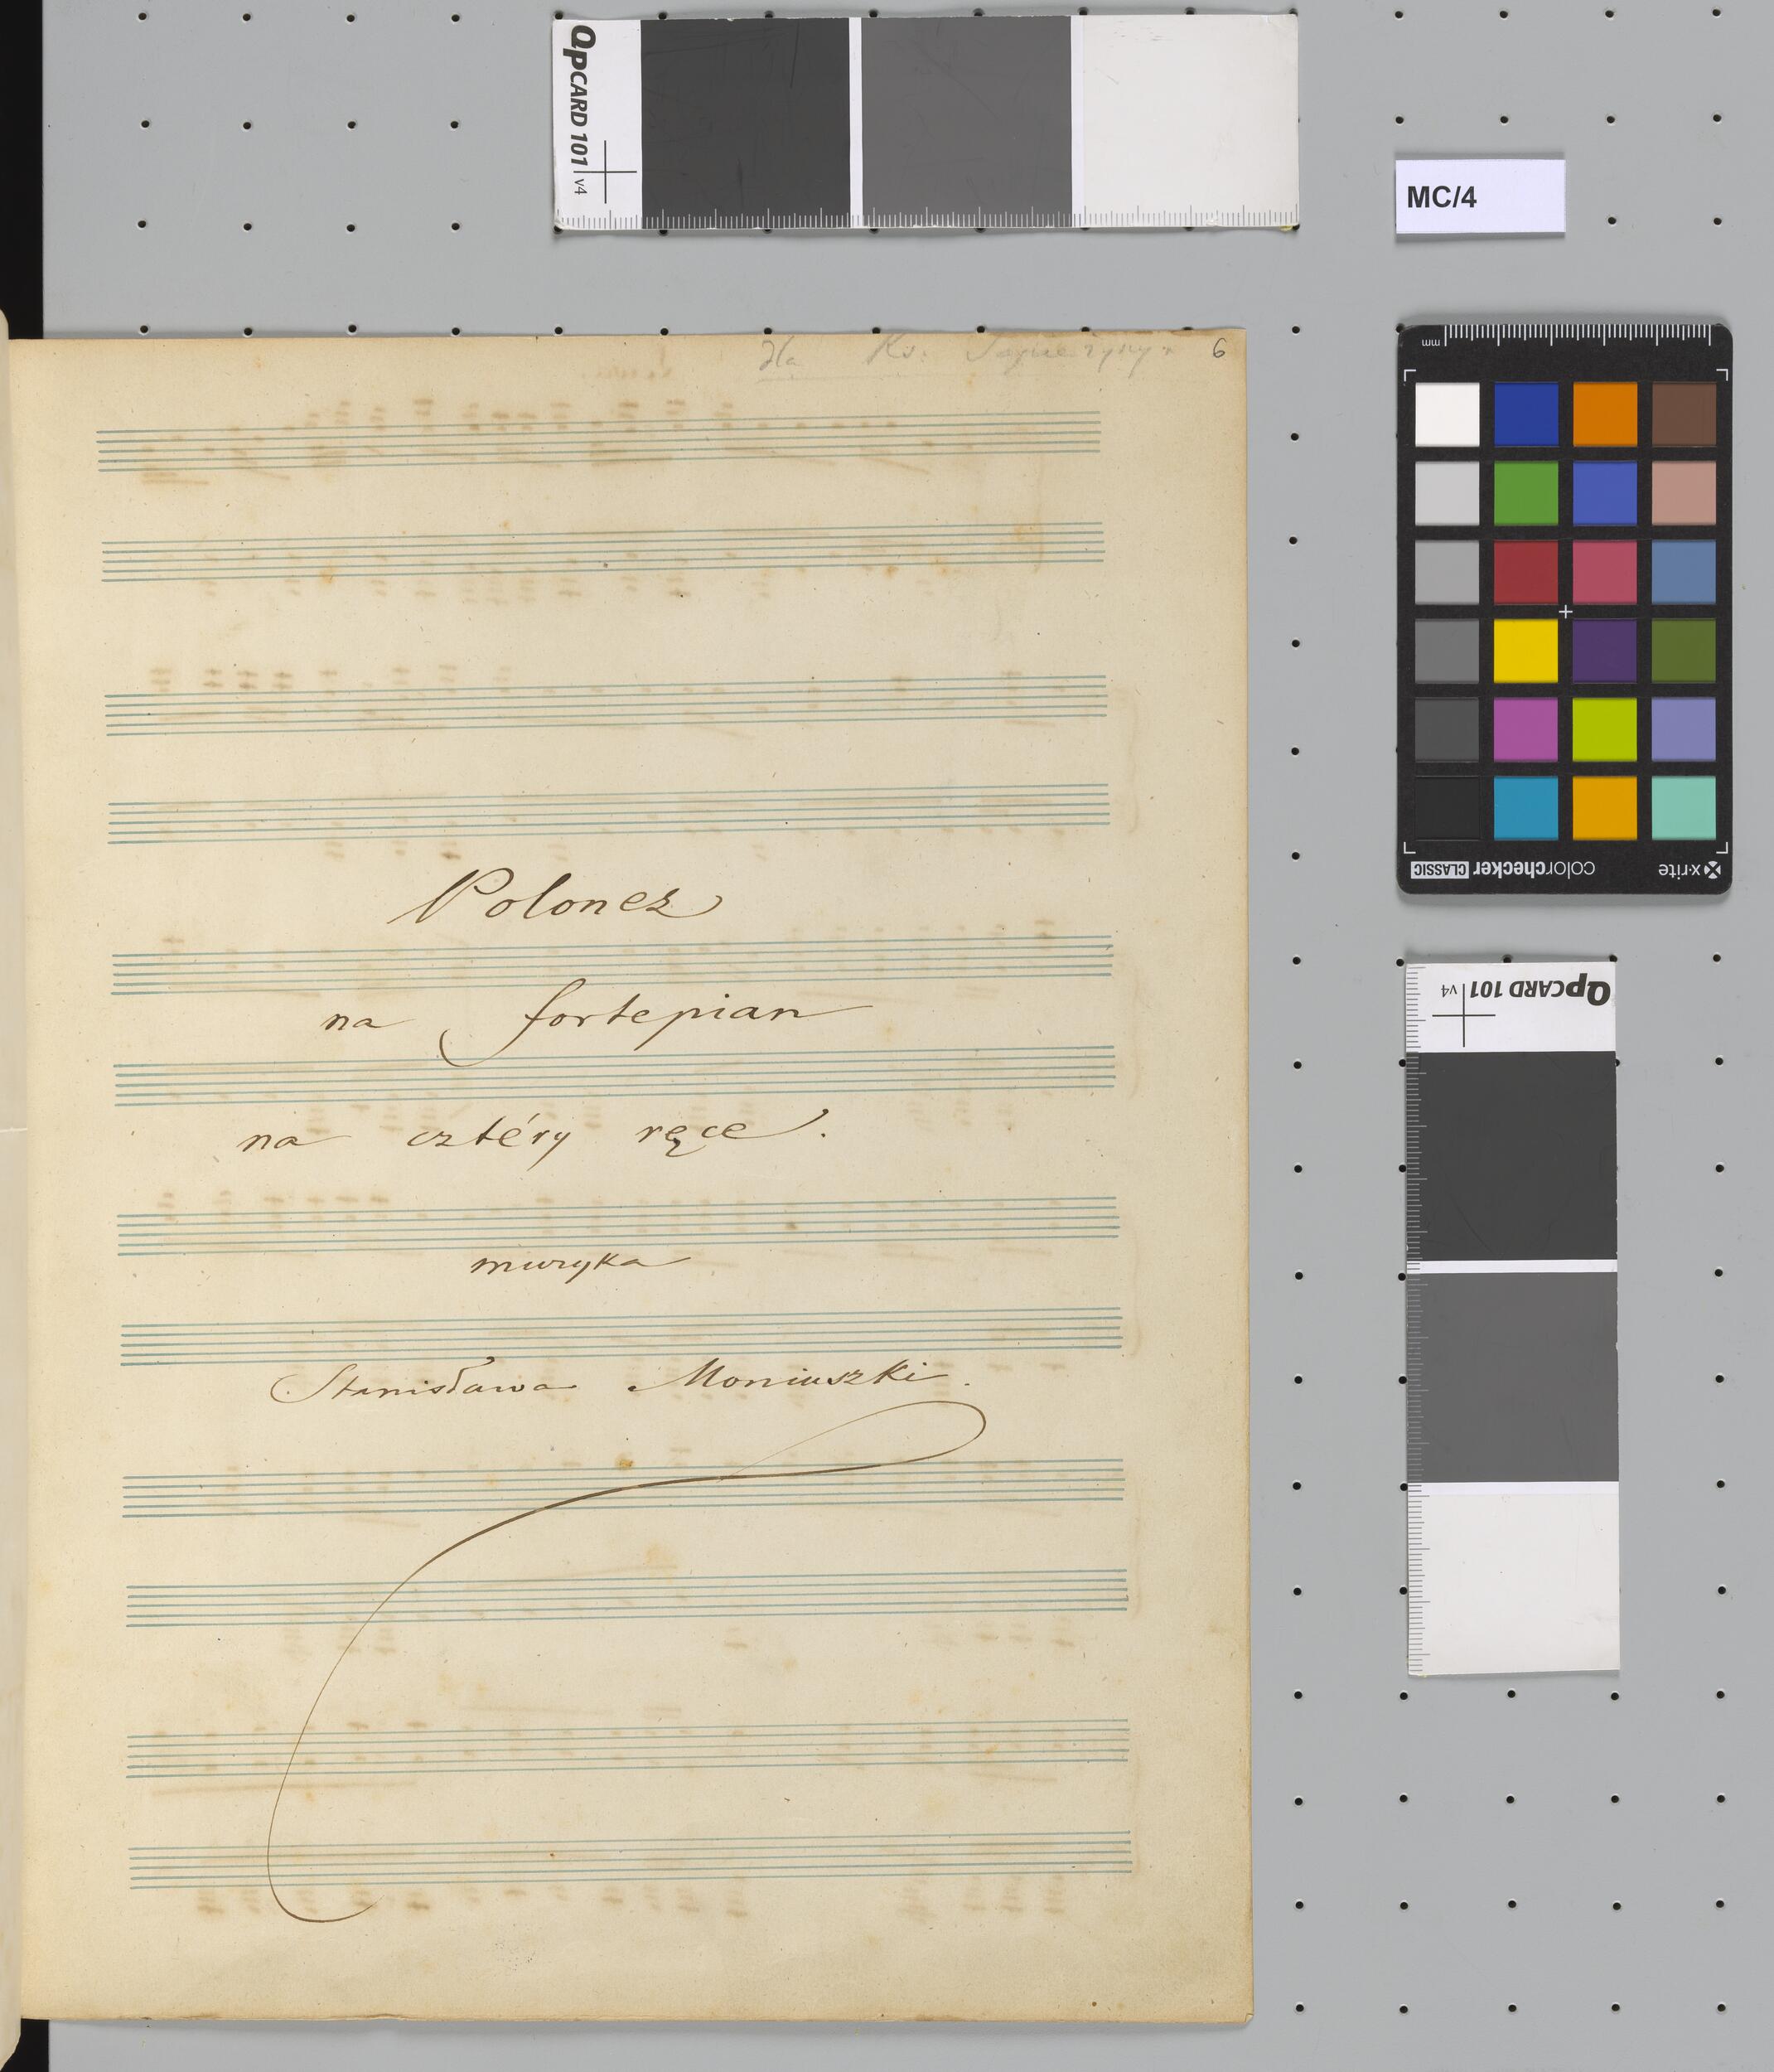 QPCARD 101 v4
MC/4
dla Ks: 6
mm
Polonez
na fortepian
na cztéry ręce.
muzyka
Stanisława Moniuszki.
x-rite colorchecker CLASSIC
QPCARD 101 v4